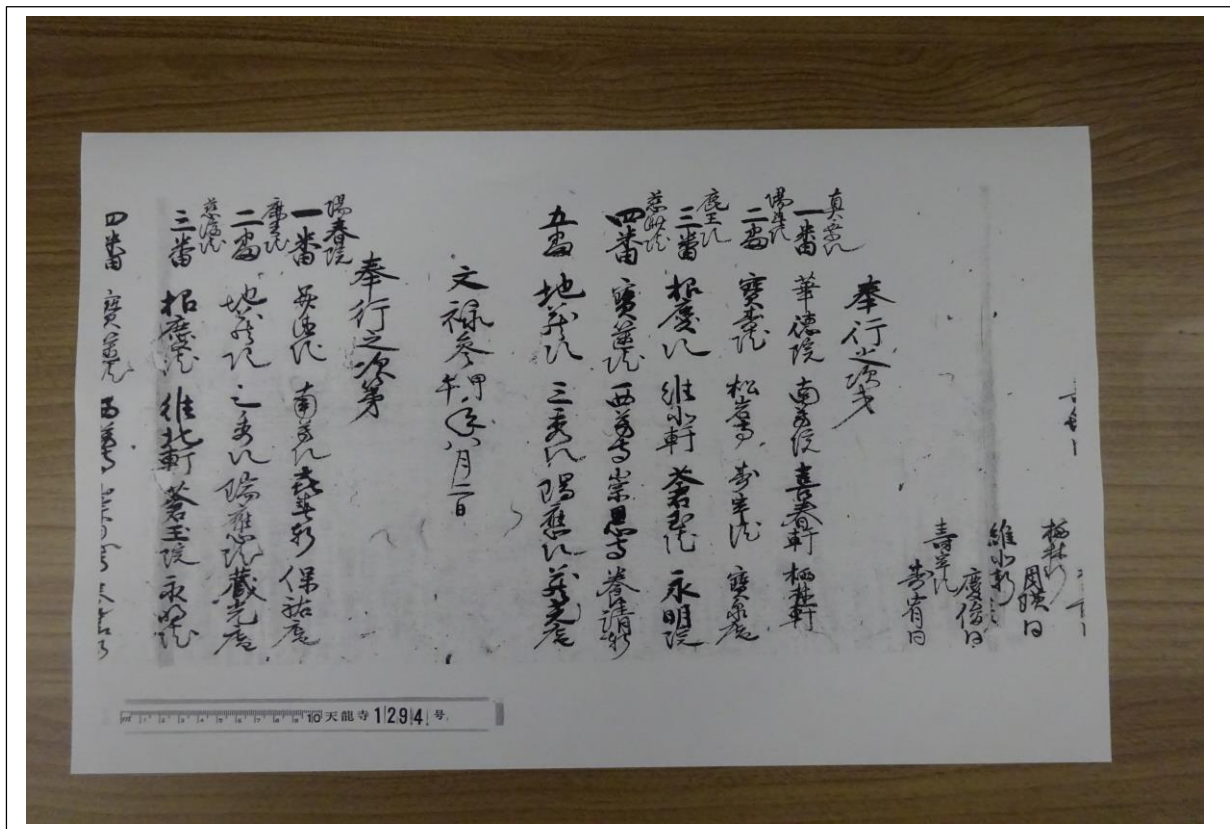 栖林軒
周瑛日
維北軒
慶俊日
壽寧院
壽宥日
奉行之次才
真乘院
一番 華徳院 南芳院 喜春軒 栖林軒
陽春院
二番 寶壽院 松嵓寺 壽寧院 寶泉庵
鹿王院
三番 招慶院 維北軒 蒼玉院 永明院
慈済院
四番 寶篋院 西芳寺 崇恩寺 養清軒
五番 地蔵院 三秀院 瑞應院 蔵光庵
文禄参甲午年八月二日
奉行之次第
陽春院
一番 華徳院 南芳院 喜春軒 保祐庵
鹿王院
二番 地蔵院 三秀院 瑞應院 蔵光庵
慈済院
三番 招慶院 維北軒 蒼玉院 永明院
四番 寶篋院 西芳寺
cm 1 2 3 4 5 6 7 8 9 10 天龍寺 1294 号